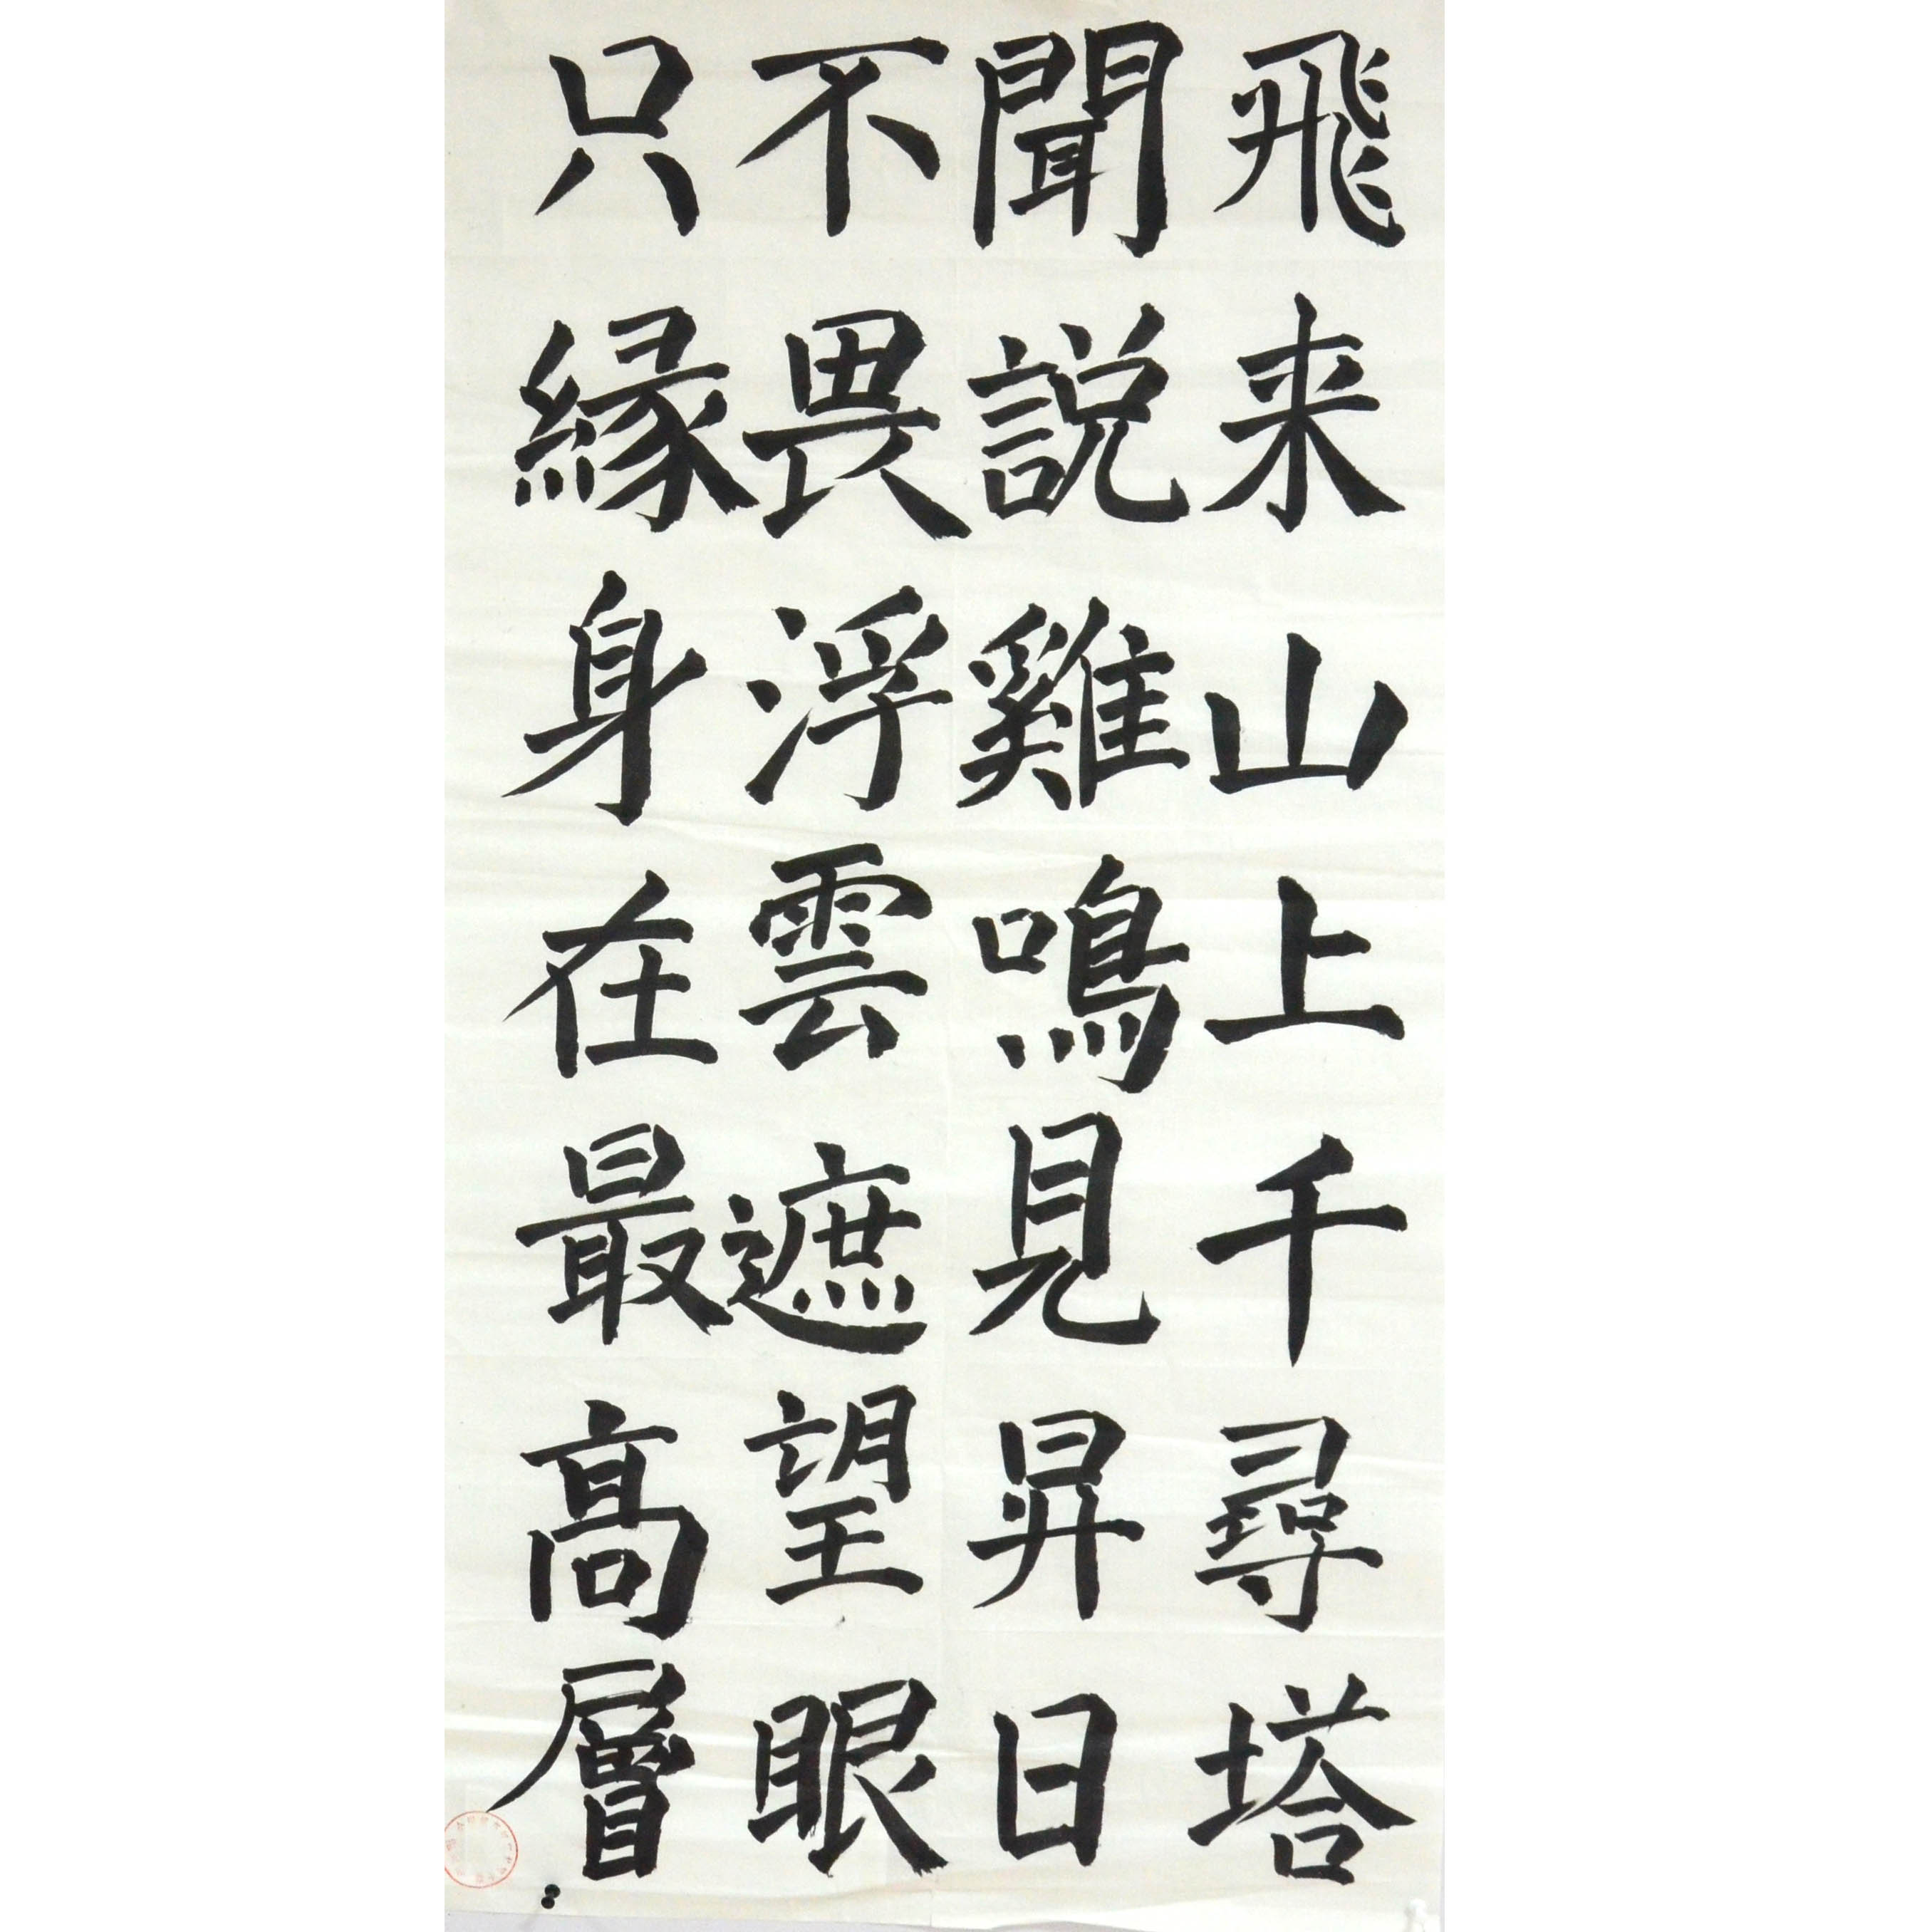 飛来山上千尋塔
聞説雞鳴見昇日
不畏浮雲遮望眼
只縁身在最高層